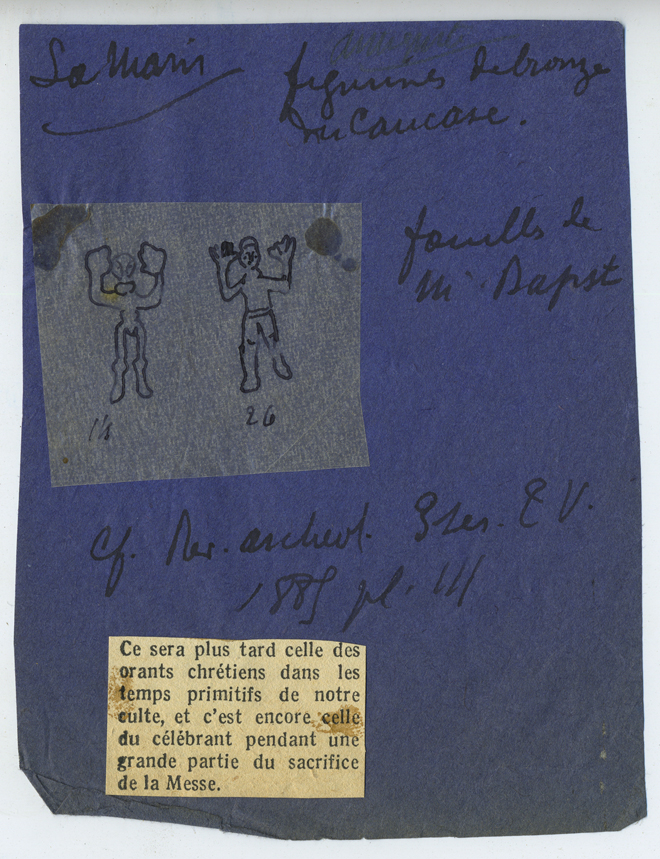 La Main
figurines de bronze
du Caucase.
fouilles de
Mr Bapst
26
Cf. Rev. archeol. 3 ser. T V.
1885 pl. III
Ce sera plus tard celle des
orants chrétiens dans les
temps primitifs de notre
culte, et c'est encore celle
du célébrant pendant une
grande partie du sacrifice
de la Messe.